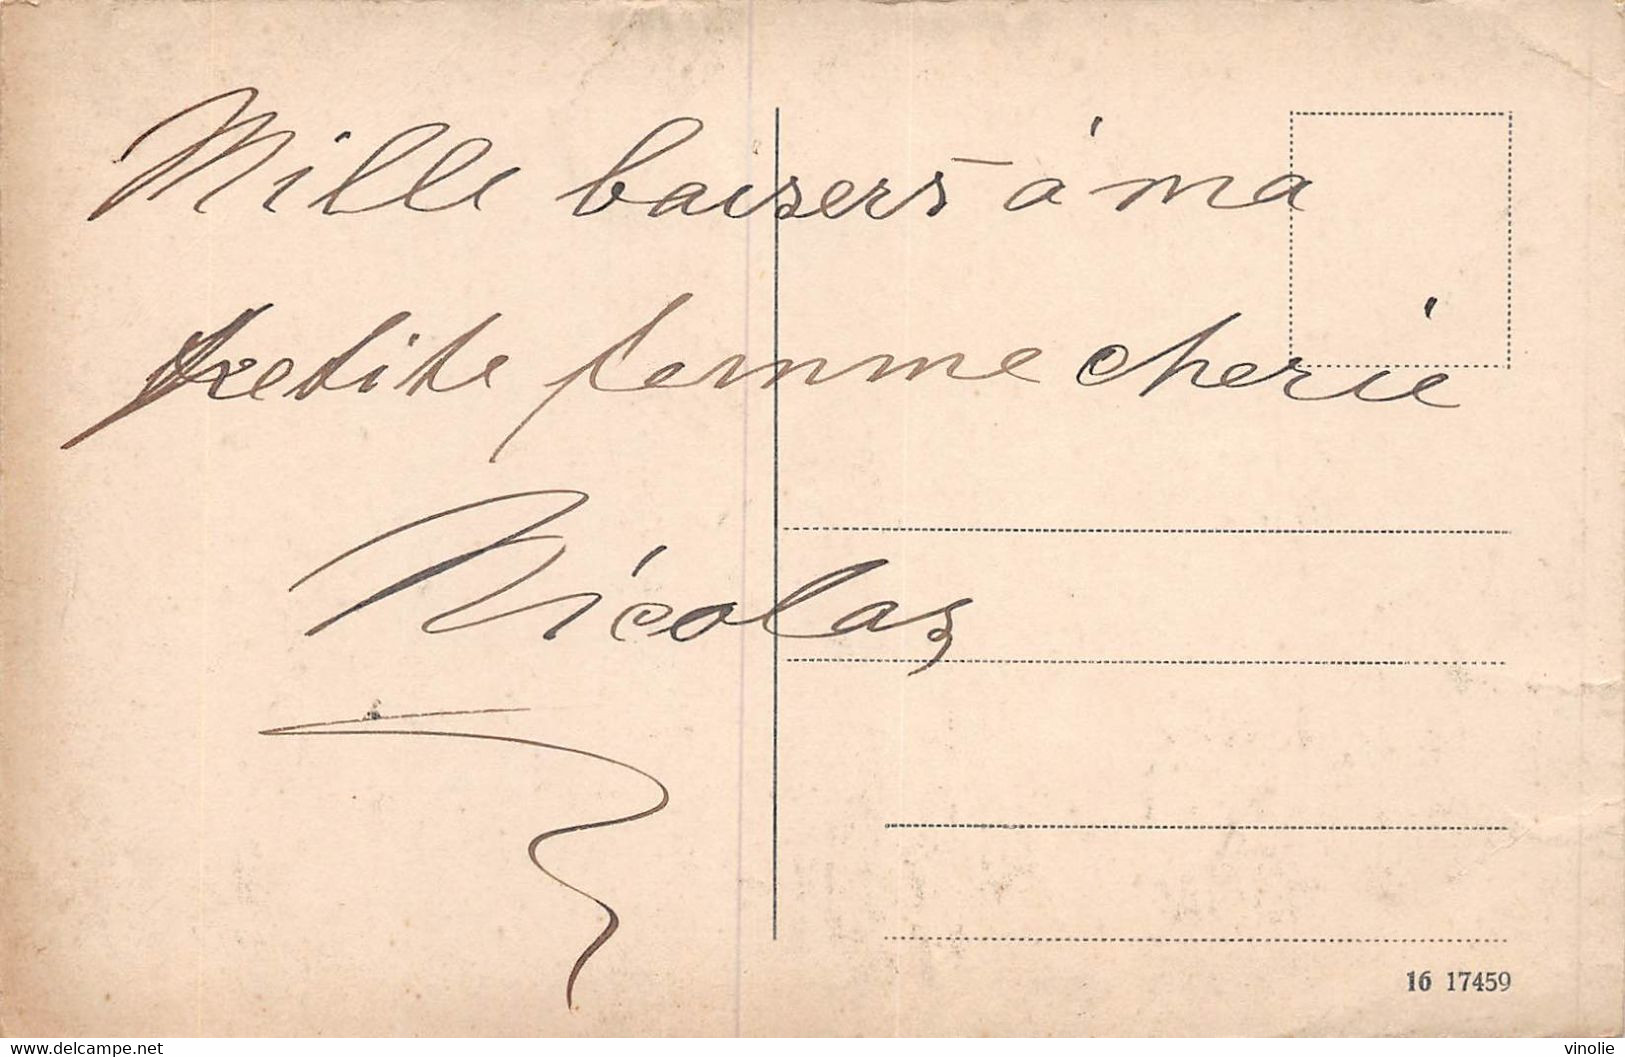 Mille baisers à ma
petite femme cherie
Nicolas
16 17459
www.delcampe.net
vinolie